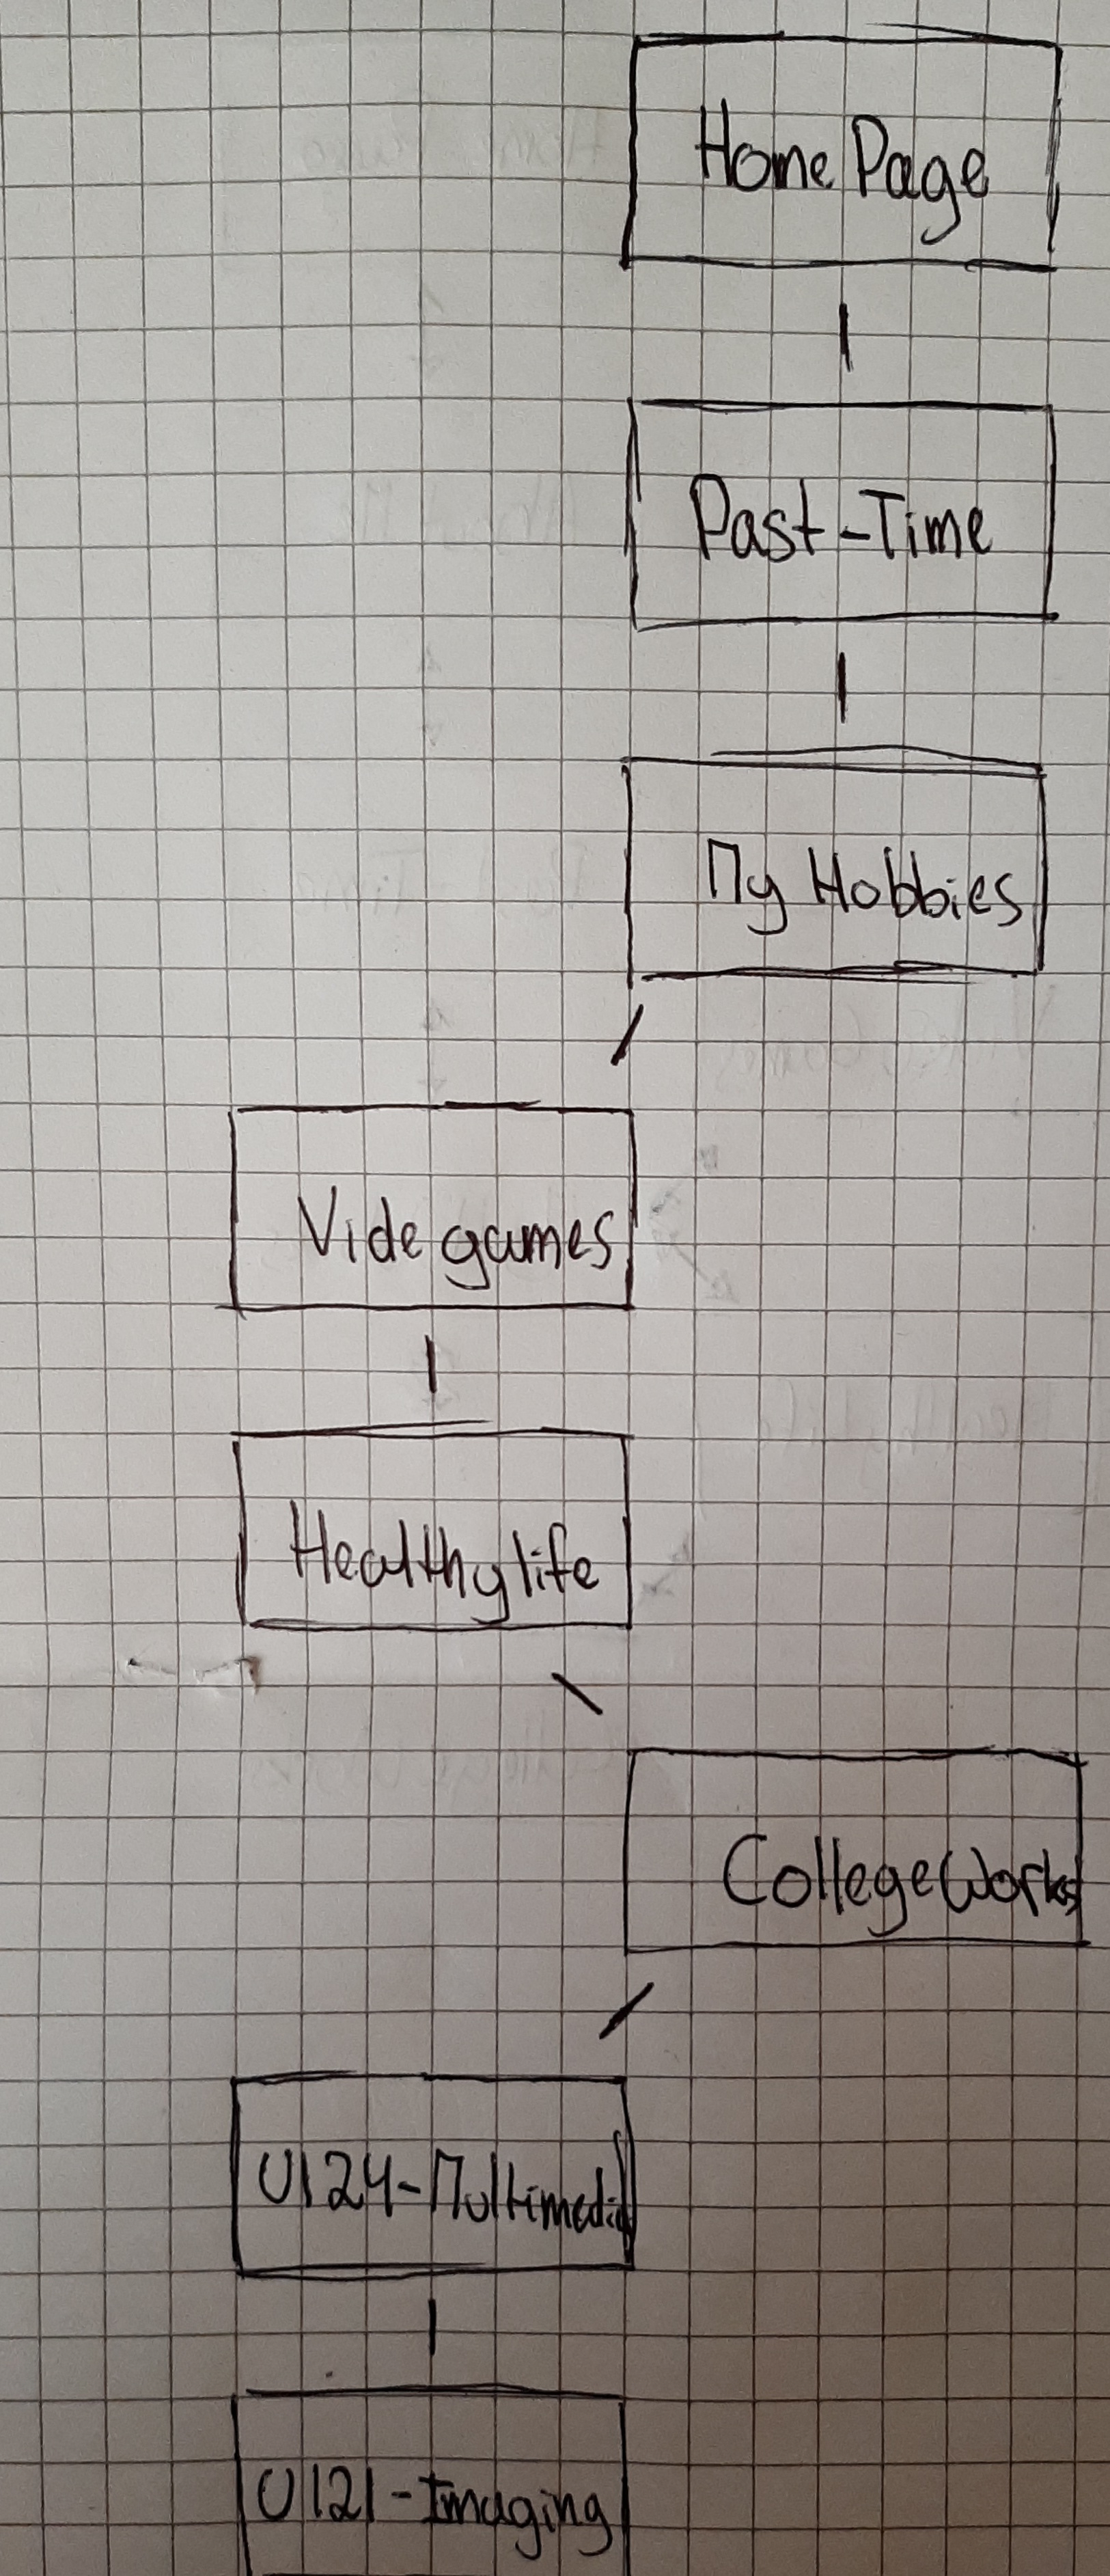 Home Page
Past-Time
My Hobbies
Vide games
Healthy life
College Works
U124-Multimedia
U121-Imaging